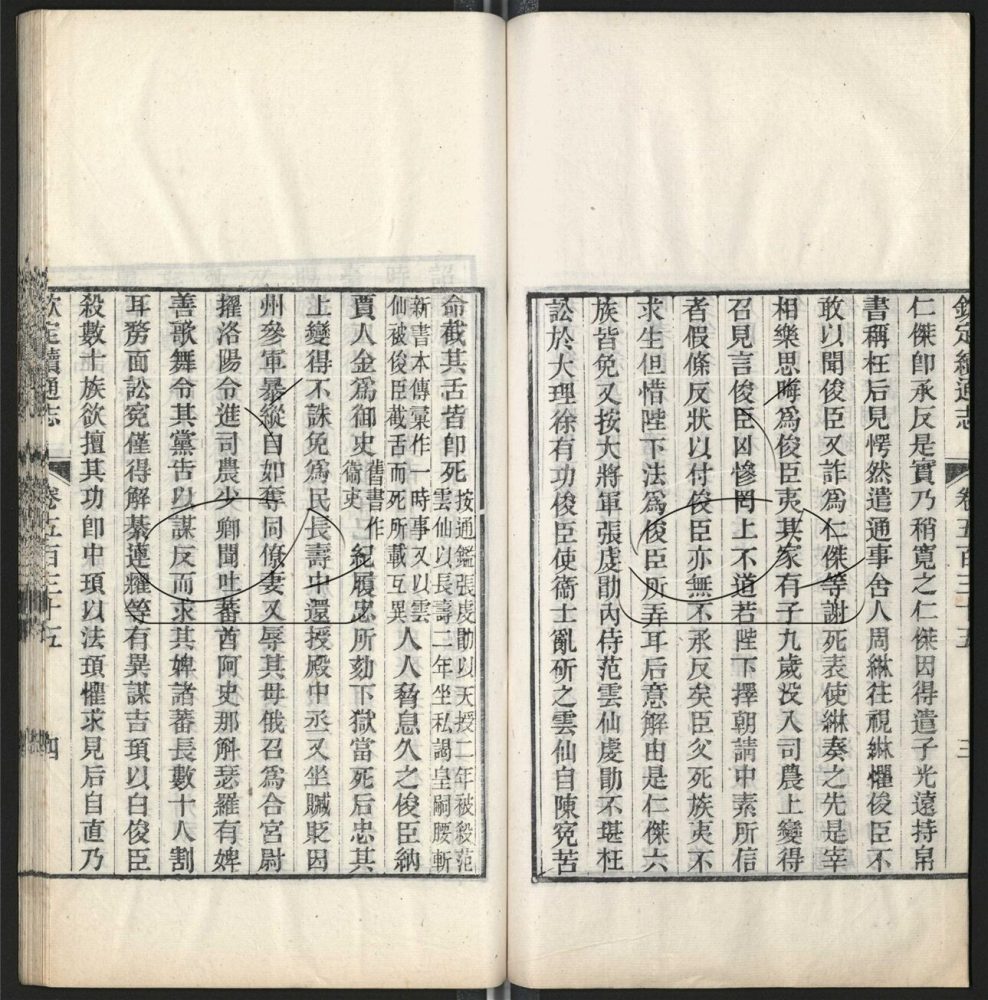 欽定續通志 卷五百三十五 三
仁傑卽承反是實乃稍寬之仁傑因得遣子光遠持帛
書稱枉后見愕然遣通事舍人周綝往視綝懼俊臣不
敢以聞俊臣又詐爲仁傑等謝死表使綝奏之先是宰
相樂思晦爲俊臣夷其家有子九歲没入司農上變得
召見言俊臣凶慘罔上不道若陛下擇朝請中素所信
者假條反狀以付俊臣亦無不承反矣臣父死族夷不
求生但惜陛下法爲俊臣所弄耳后意解由是仁傑六
族皆免又按大將軍張虔勖內侍范雲仙虔勖不堪枉
訟於大理徐有功俊臣使衞士亂斫之雲仙自陳冤苦
命截其舌皆卽死按通鑑張虔勖以天授二年被殺范
雲仙以長壽二年坐私謁皇嗣腰斬
新書本傳彙作一時事又以雲
仙被俊臣截舌而死所載互異人人脅息久之俊臣納
賈人金爲御史舊書作
衞吏紀履忠所劾下獄當死后忠其
上變得不誅免爲民長壽中還授殿中丞又坐贓貶因
州參軍暴縱自如奪同僚妻又辱其母俄召爲合宮尉
擢洛陽令進司農少卿聞吐蕃酋阿史那斛瑟羅有婢
善歌舞令其黨告以謀反而求其婢諸蕃長數十人割
耳剺面訟寃僅得解綦連耀等有異謀吉頊以白俊臣
殺數十族欲擅其功卽中頊以法頊懼求見后自直乃
欽定續通志 卷五百三十五 四